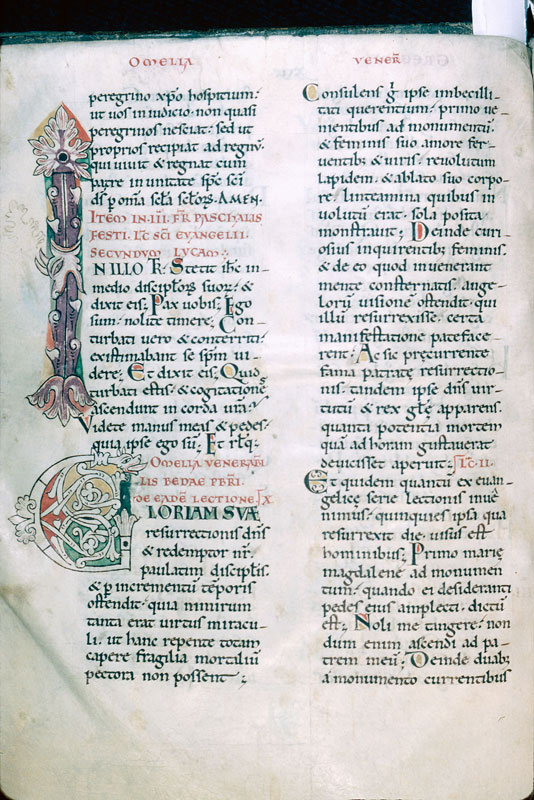 OMELIA VENER̄
peregrino xp̄o hospitium·
ut vos in iudicio· non quasi
peregrinos nesciat· sed ut
proprios recipiat ad regnū·
qui vivit & regnat cum
patre in unitate sp̄c sc̄i
d̄s p̄ om̄a sc̄la sc̄lorꝝ· AMEN·
ITEM IN· III· FR̄ PASCHALIS
FESTI· LC̄ SC̄I EVANGELII
SECUNDUM LUCAM·
IN ILLO R̄· Stetit ih̄c in
medio discip̄lorꝝ suorꝝ· &
dixit eis; Pax vobis; Ego
sum· nolite timere; Con
turbati vero & conterriti·
existimabant se sp̄m vi-
dere; Et dixit eis; Quid
turbati estis· & cogitationes
ascendunt in corda vr̄a?
Videte manus meas & pedes·
quia ipse ego sū; Et rl̄q;
OMELIA VENERABI
LIS BEDAE PB̄RI·
DE EADĒ LECTIONE
GLORIAM SUÆ
resurrectionis d̄n̄s
& redemptor nr̄·
paulatim discip̄lis·
& p̄ incrementū tēporis
ostendit· quia nimirum
tanta erat virtus miracu
li· ut hanc repente totam
capere fragilia mortaliū
pectora non possent;
Consulens ḡ ipse imbecilli
tati querentium· primo ve
nientibus ad monumentū·
& feminis suo amore fer-
ventib; & viris· revolutum
lapidem· & ablato suo corpo-
re· linteamina quibus in
volutū erat· sola posita
monstravit; Deinde curi-
osius inquirentib; feminis·
& de eo quod invenerant
mente consternatis· ange-
lorū visione ostendit· qui
illū resurrexisse· certa
manifestatione pateface-
rent; Ac sic pręcurrente
fama patratę resurrectio-
nis· tandem ipse dn̄s vir-
tutū & rex glę apparens·
quanta potentia mortem
quā ad horam gustaverat
devicisset aperuit; LC̄· II·
Et quidem quantū ex evan-
gelicę serie lectionis inve
nimus· quinquies ipsa qua
resurrexit die· visus est
hominibus; Primo marię
magdalene· ad monumen
tum· quando ei desideranti
pedes eius amplecti· dictū
est; Noli me tangere· non
dum enim ascendi ad pa-
trem meū; Deinde duab;
a monumento currentibus